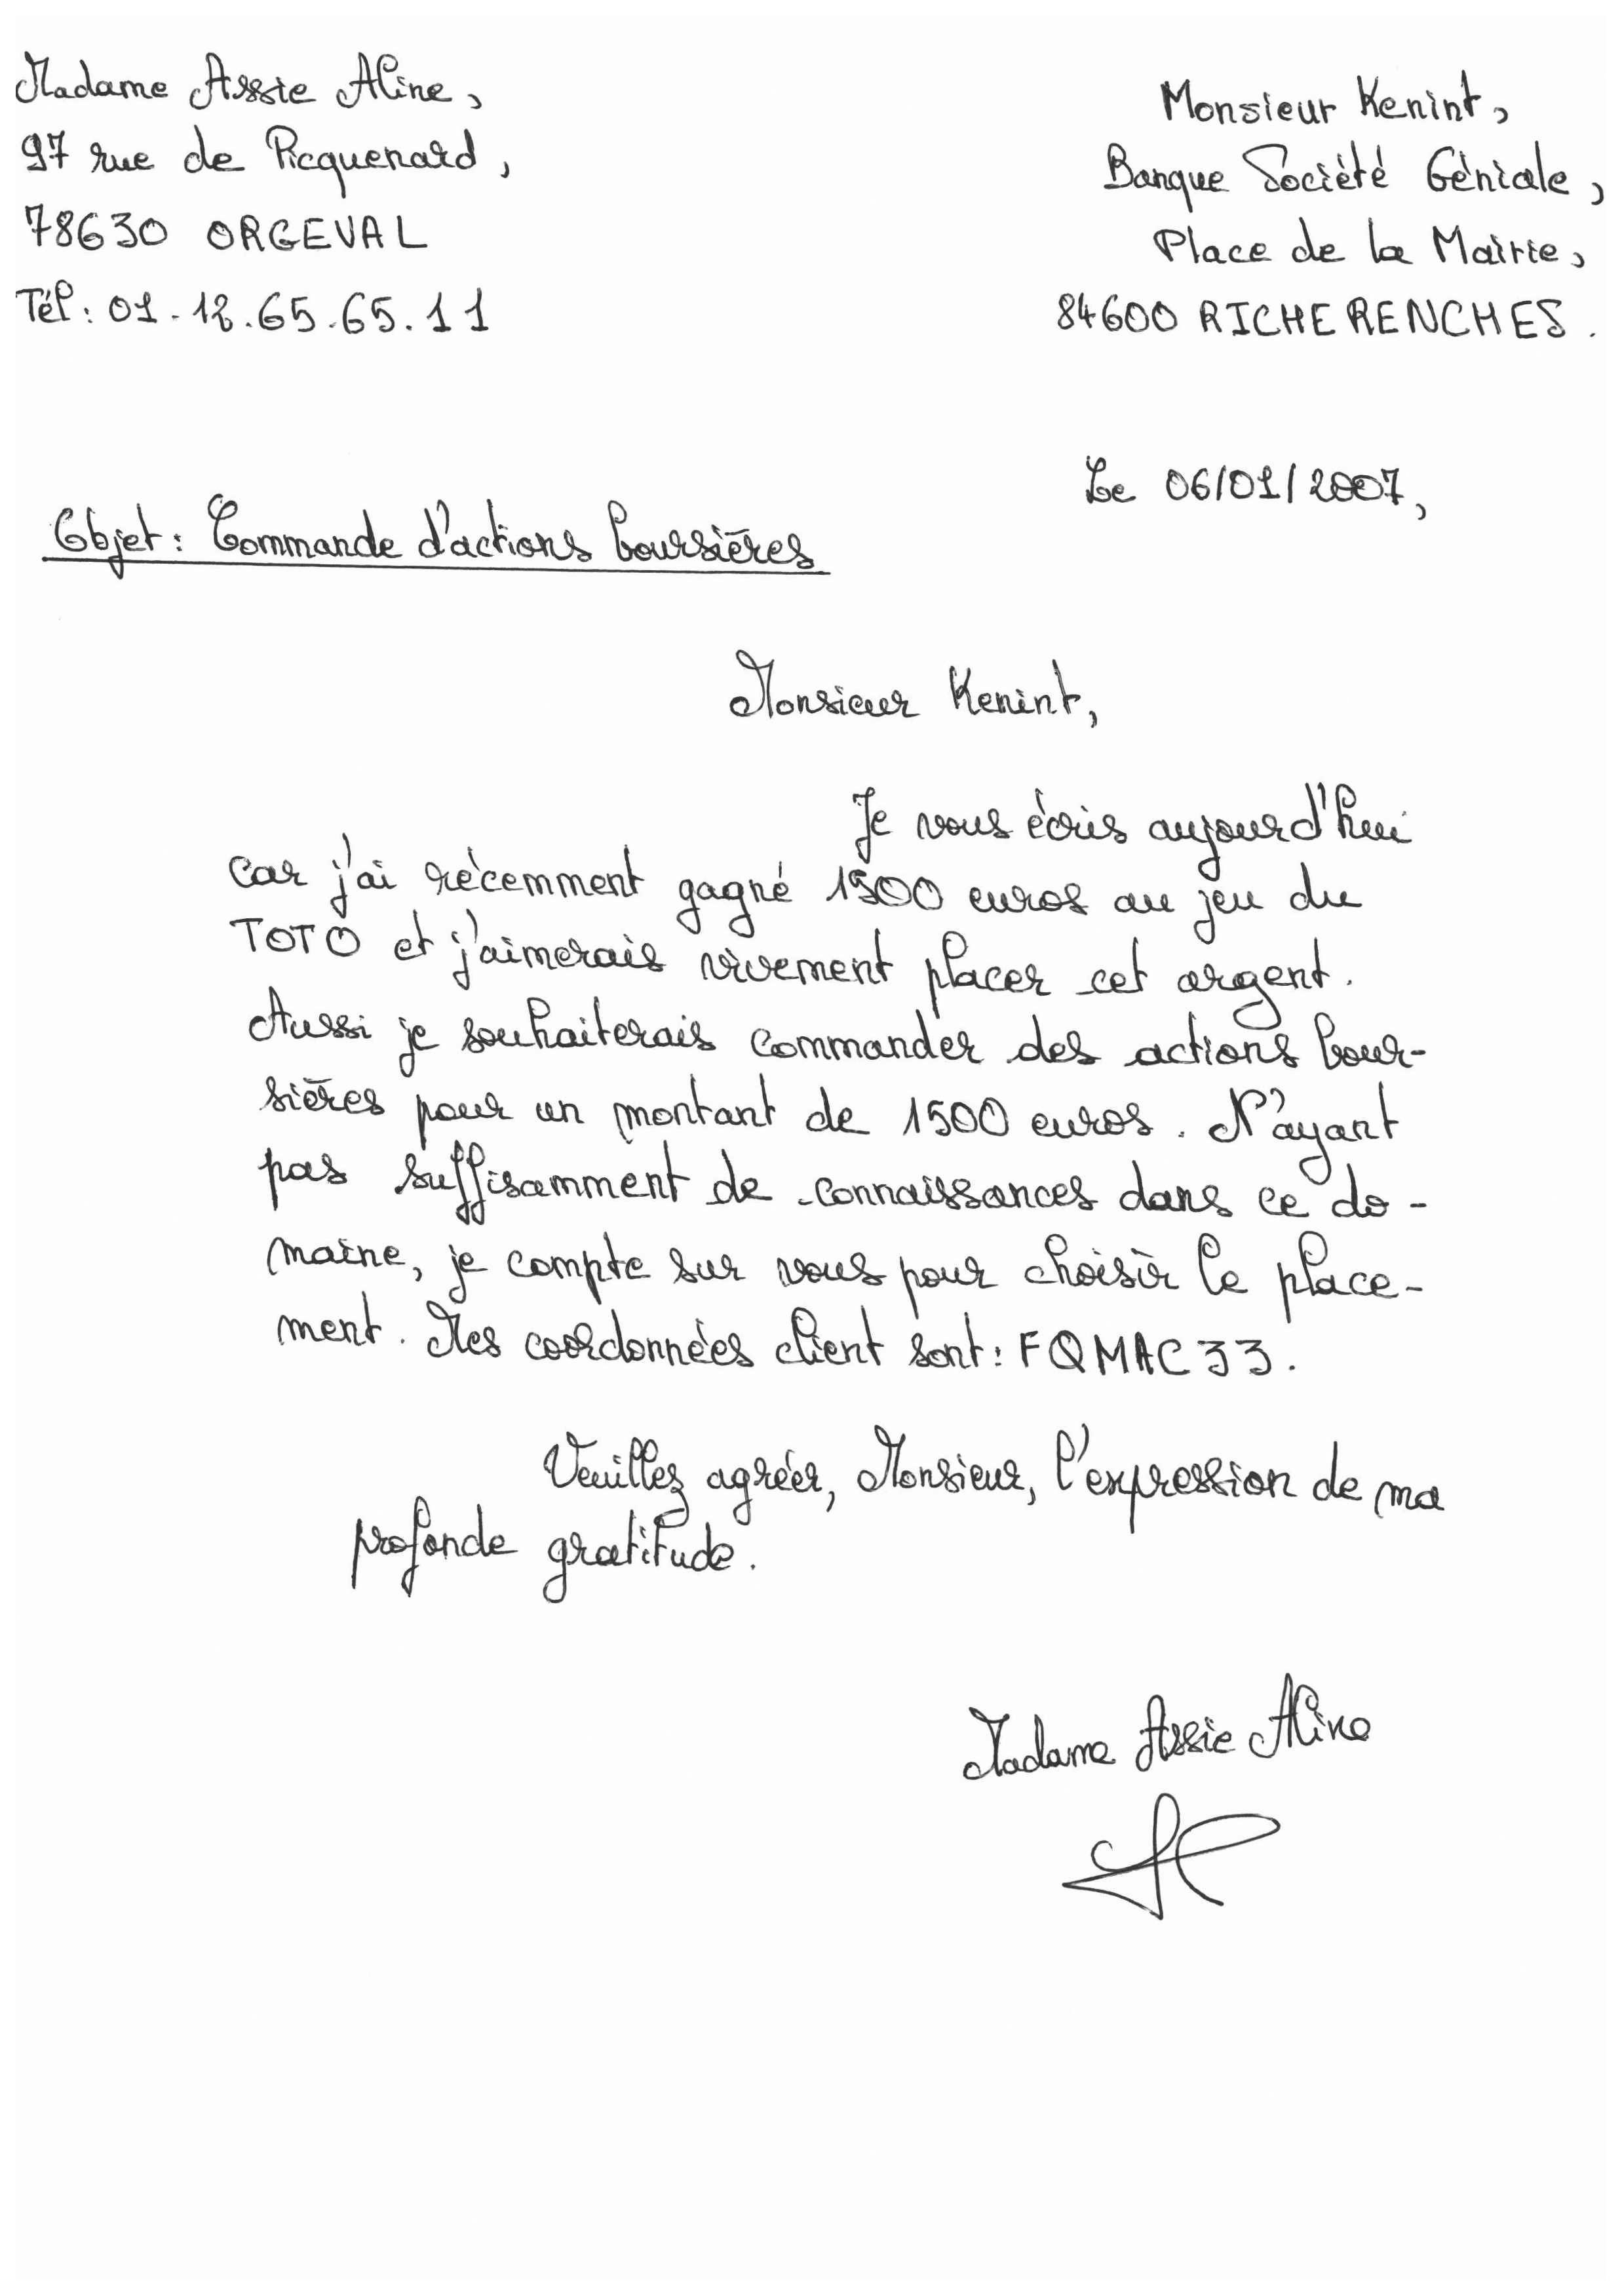 Madame Assie Aline,
97 rue de Picquenard,
78630 ORGEVAL
Tél : 01.12.65.65.11
Monsieur Kenint,
Banque Société Géniale,
Place de la Mairie,
84600 RICHERENCHES.
Le 06/01/2007,
Objet : Commande d'actions boursières
Monsieur Kenint,
Je vous écris aujourd'hui
car j'ai récemment gagné 1500 euros au jeu du
TOTO et j'aimerais vivement placer cet argent.
Aussi je souhaiterais commander des actions bour-
sières pour un montant de 1500 euros. N'ayant
pas suffisamment de connaissances dans ce do-
maine, je compte sur vous pour choisir le place-
ment. Mes coordonnées client sont : FQMAC33.
Veuillez agréer, Monsieur, l'expression de ma
profonde gratitude.
Madame Assie Aline